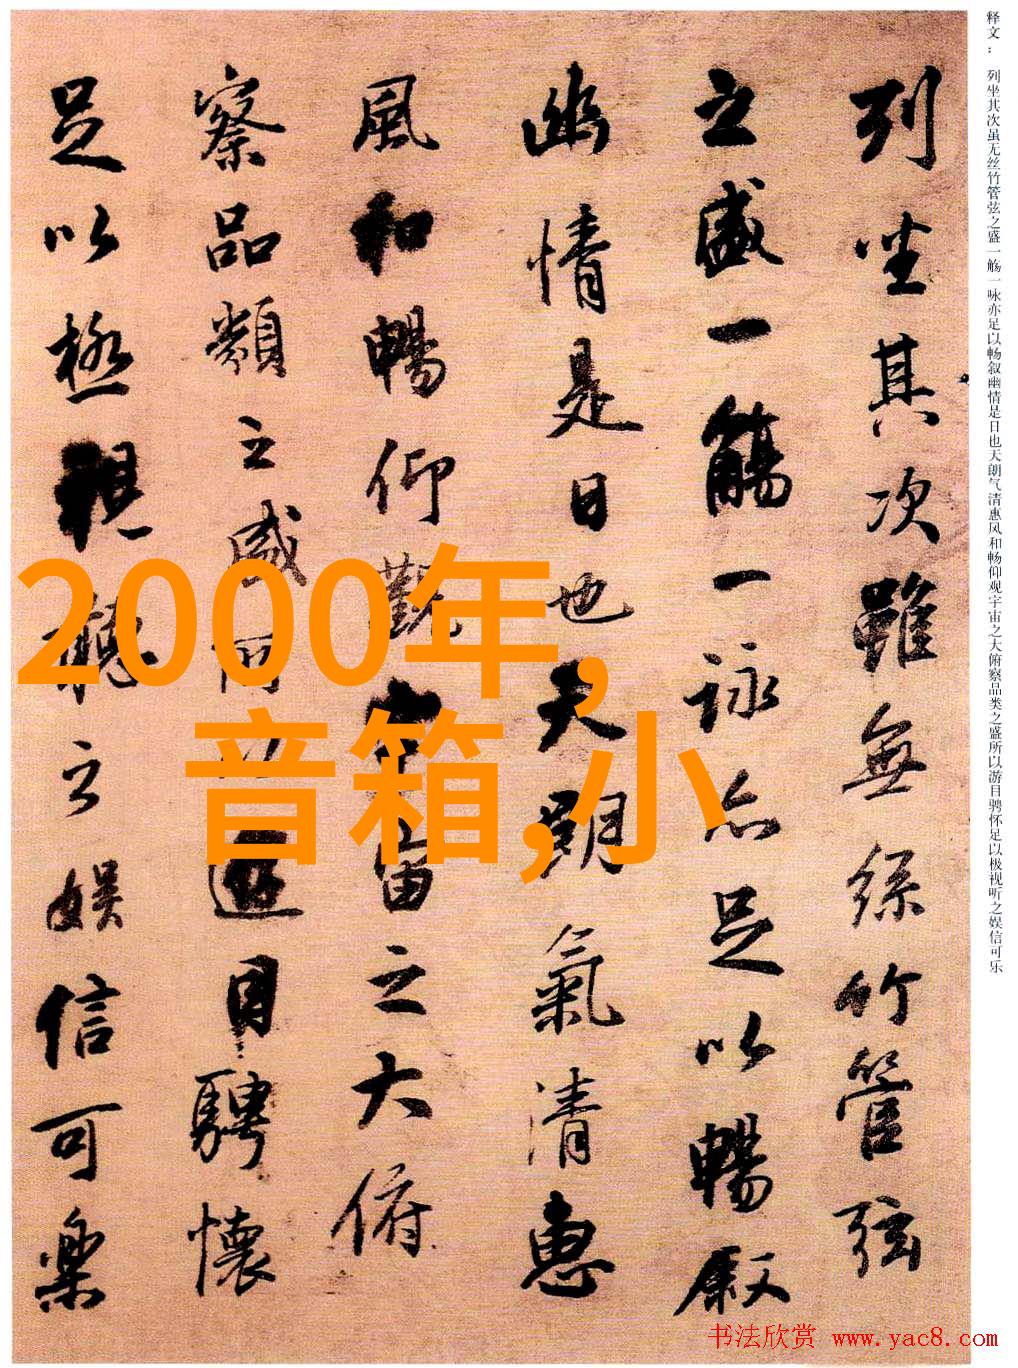 释文： 列坐其次虽无丝竹管弦之盛一觞一咏亦足以畅叙幽情是日也天朗气清惠风和畅仰观宇宙之大俯察品类之盛所以游目骋怀足以极视听之娱信可乐
列坐其次雖無絲竹管弦
之盛一觴一詠亦足以暢叙
幽情是日也天朗氣清惠
風和暢仰觀宇宙之大俯
察品類之盛所以遊目騁懷
足以極視聽之娛信可樂
2000年,
音箱,小
书法欣赏 www.yac8.com